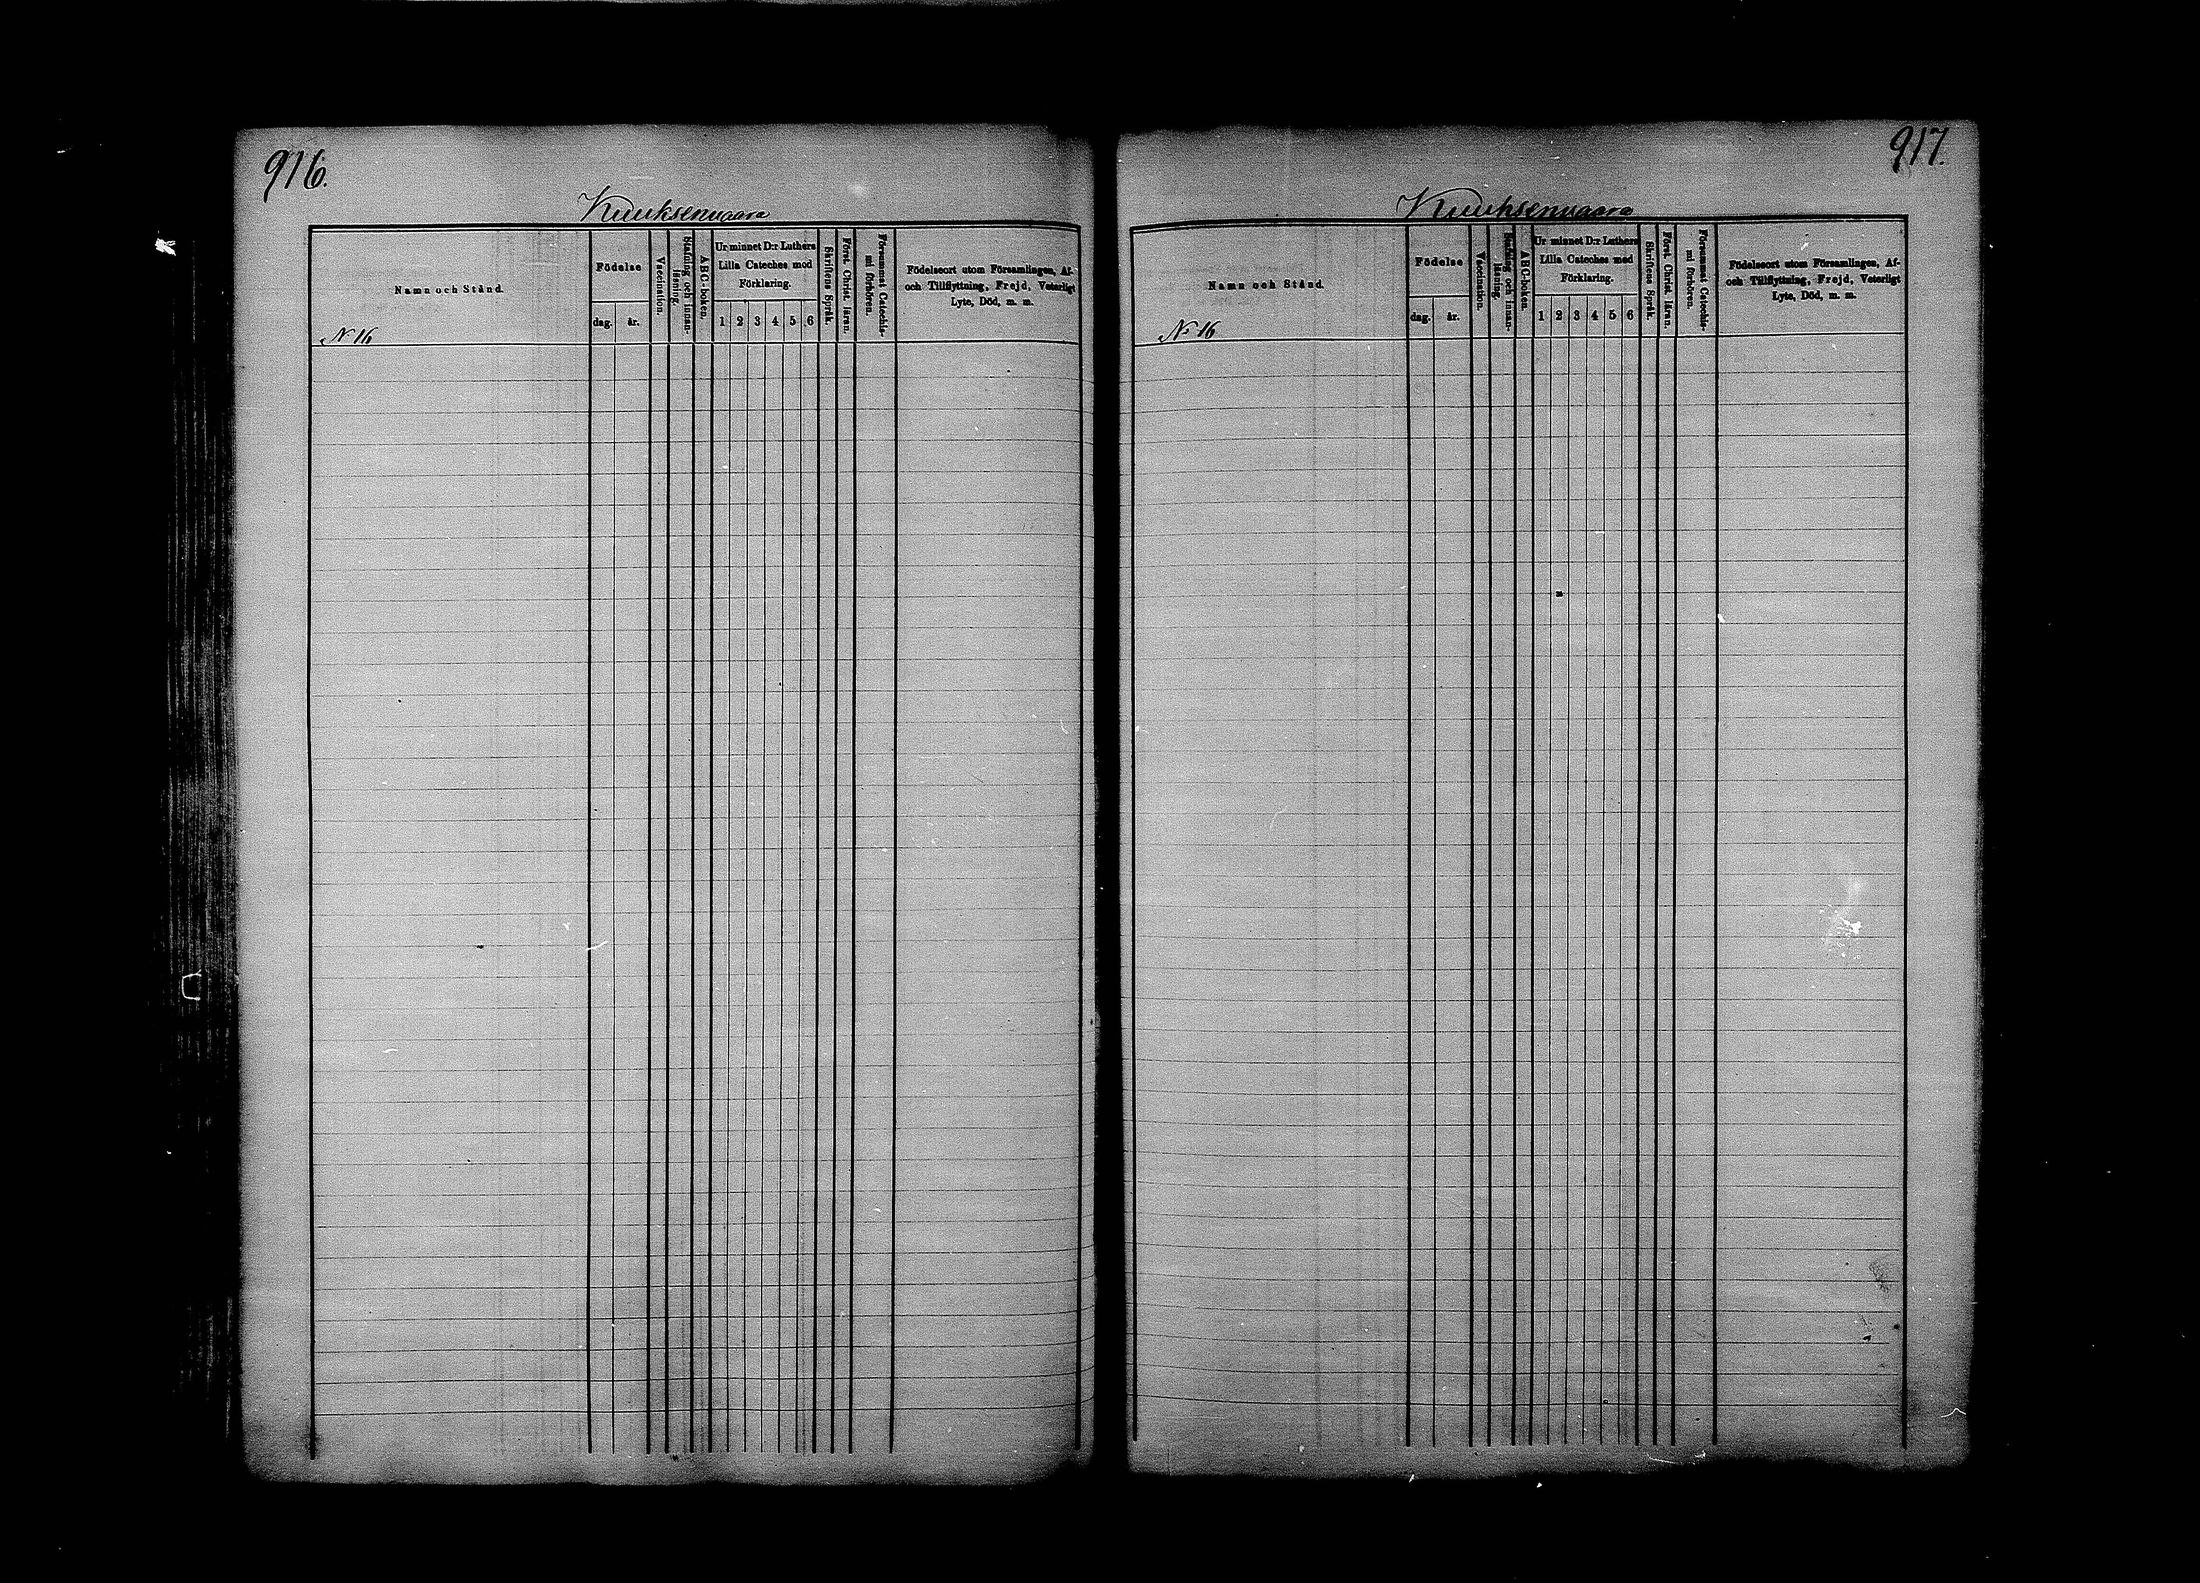 916.
Kuuksenvaara
Namn och Stånd.
Födelse
dag. år.
Vaccination.
Stafning och innan-
läsning.
ABC-boken.
Ur minnet D:r Luthers
Lilla Cateches med
Förklaring.
1 2 3 4 5 6
Skriftens Språk.
Först. Christ. läran.
Försummat Catechis-
mi förhören.
Födelseort utom Församlingen, Af-
och Tillflyttning, Frejd, Veterligt
Lyte, Död, m. m.
N 16
917.
Kuuksenvaara
Namn och Stånd.
Födelse
dag. år.
Vaccination.
Stafning och innan-
läsning.
ABC-boken.
Ur minnet D:r Luthers
Lilla Cateches med
Förklaring.
1 2 3 4 5 6
Skriftens Språk.
Först. Christ. läran.
Försummat Catechis-
mi förhören.
Födelseort utom Församlingen, Af-
och Tillflyttning, Frejd, Veterligt
Lyte, Död, m. m.
No 16